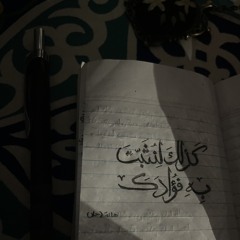 كَذَٰلِكَ لِنُثَبِّتَ
بِهِ فُؤَادَكَ